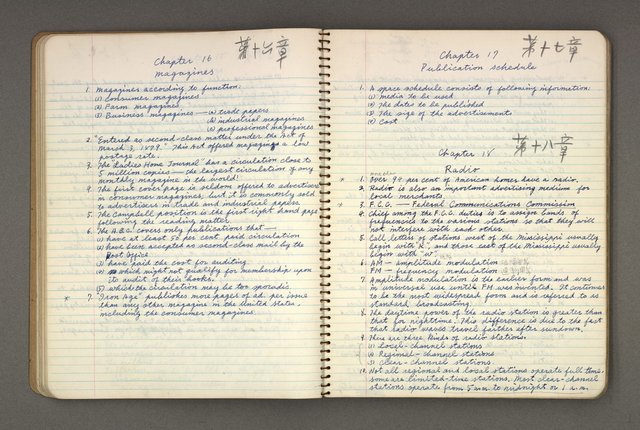 第十六章
Chapter 16
Magazines
1. Magazines according to function:
(1) consumer magazines
(2) Farm magazines
(3) Business magazines — a) trade papers
b) industrial magazines
c) professional magazines
2. "Entered as second-class matter under the Act of
March 3, 1879." This Act offered magazines a low
postage rate.
3. The Ladies Home Journal has a circulation close to
5 million copies — the largest circulation of any
monthly magazine in the world.
4. The first cover page is seldom offered to advertisers
in consumer magazines, but it is commonly sold
to advertisers in trade and industrial papers.
5. The Campbell position is the first right hand page
following the reading matter.
6. The A.B.C. covers only publications that —
(1) have at least 50 per cent paid circulation
(2) have been accepted as second-class mail by the
Post Office
(3) have paid the cost for auditing.
(4) which might not qualify for membership upon
its audit of their books.
(5) which the circulation may be too sporadic.
* 7. "Iron Age" publishes more pages of ad. per issue
than any other magazine in the United States,
including the consumer magazines.
第十七章
Chapter 17
Publication schedule
1. A space schedule consists of following information:
(1) media to be used
(2) The dates to be published
(3) The size of the advertisements
(4) Cost
第十八章
Chapter 18
Radio
* 1. Over 99 per cent of American homes have a radio.
2. Radio is also an important advertising medium for
local merchants.
* 3. F.C.C. — Federal Communications Commission
4. Chief among the F.C.C. duties is to assign bands of
frequencies to the various stations so that they will
not interfere with each other.
5. Call letters of stations west of the Mississippi usually
begin with "K", and those east of the Mississippi usually
begin with "W".
6. AM — amplitude modulation
FM — frequency modulation
7. Amplitude modulation is the earlier form and was
in universal use until FM was invented. It continues
to be the most widespread form and is referred to as
standard broadcasting.
8. The daytime power of the radio station is greater than
that for nighttime. This difference is due to the fact
that radio waves travel farther after sundown.
9. There are three kinds of radio stations:
(1) Local-channel stations
(2) Regional-channel stations
(3) Clear-channel stations
10. Not all regional and local stations operate full time,
some are limited-time stations. Most clear-channel
stations operate from 5 a.m. to midnight or 1 a.m.